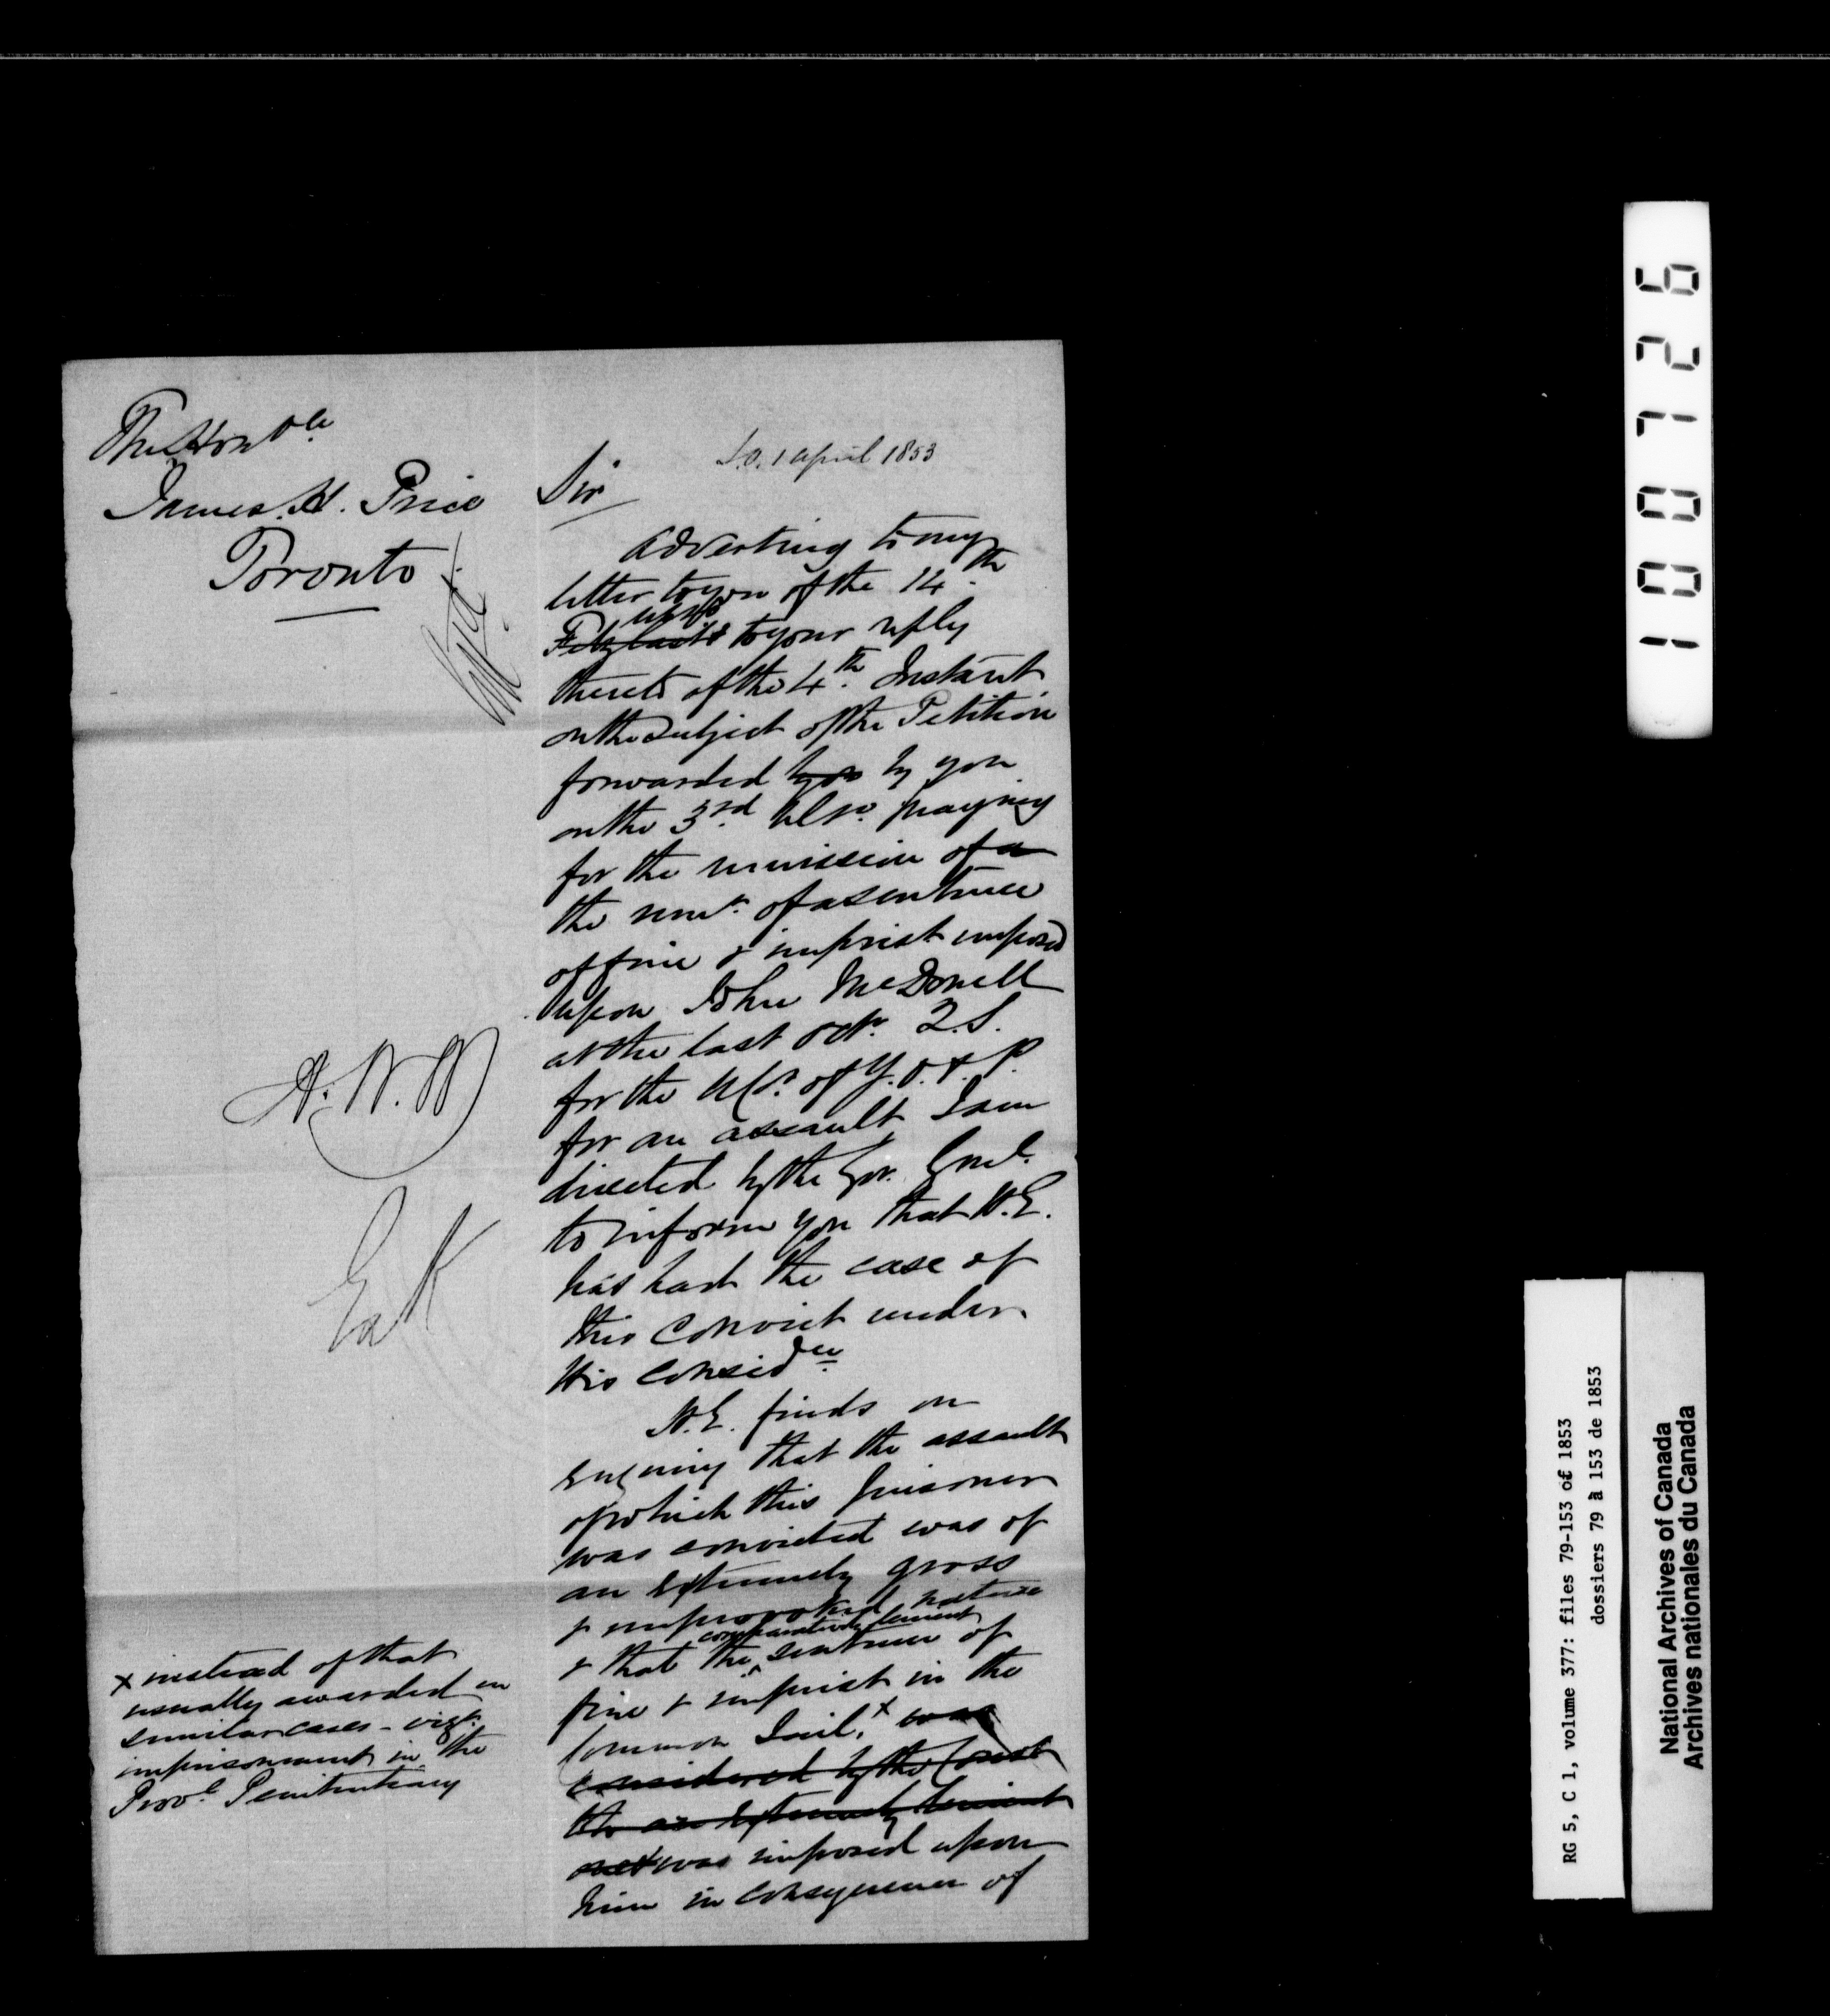 The Honble
James. H. Price
Toronto
S.O. 1 April 1853
Sir
Adverting to my
letter to you of the 14th
ulto
to your reply
thereto of the 4th Instant
on the subject of the Petition
forwarded by you
on the 3rd ulto praying
for the remission of a
the remr. of a sentence
of fine & imprist imposed
upon John McDonell
at the last Octr. Q.S.
for the U Cs. of Y. O. & P.
for an assault I am
directed by the Gov. Genl.
to inform you that H.E.
has had the case of
this Convict under
His considn
H.E. finds on
enquiry that the assault
of which this prisoner
was convicted was of
an extremely gross
& unprovoked nature
comparatively lenient
& that the sentence of
fine & imprist in the
Common Gaol, x was
considered by the Court
extremely lenient
was imposed upon
him in consequence of
A. N. M
x instead of that
usually awarded in
similar cases - vizt.
imprisonment in the
Provl. Penitentiary
100726
RG 5, C 1, volume 377: files 79-153 of 1853
dossiers 79 à 153 de 1853
National Archives of Canada
Archives nationales du Canada